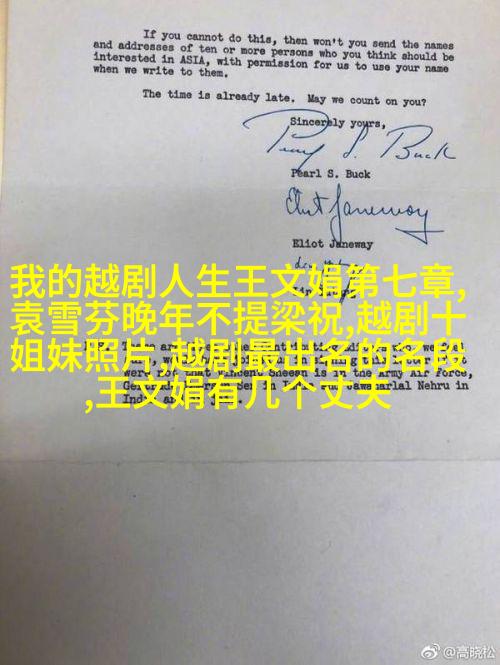 If you cannot do this, then won't you send the names
and addresses of ten or more persons who you think should be
interested in ASIA, with permission for us to use your name
when we write to them.
The time is already late. May we count on you?
Sincerely yours,
Pearl S. Buck
Pearl S. Buck
Eliot Janeway
Eliot Janeway
我的越剧人生王文娟第七章,
袁雪芬晚年不提梁祝,越剧十
姐妹照片,越剧最出名的名段
,王文娟有几个丈夫
were not that Vincent Sheean is in the Army Air Force,
Sen in India and Jawaharlal Nehru in
@高晓松